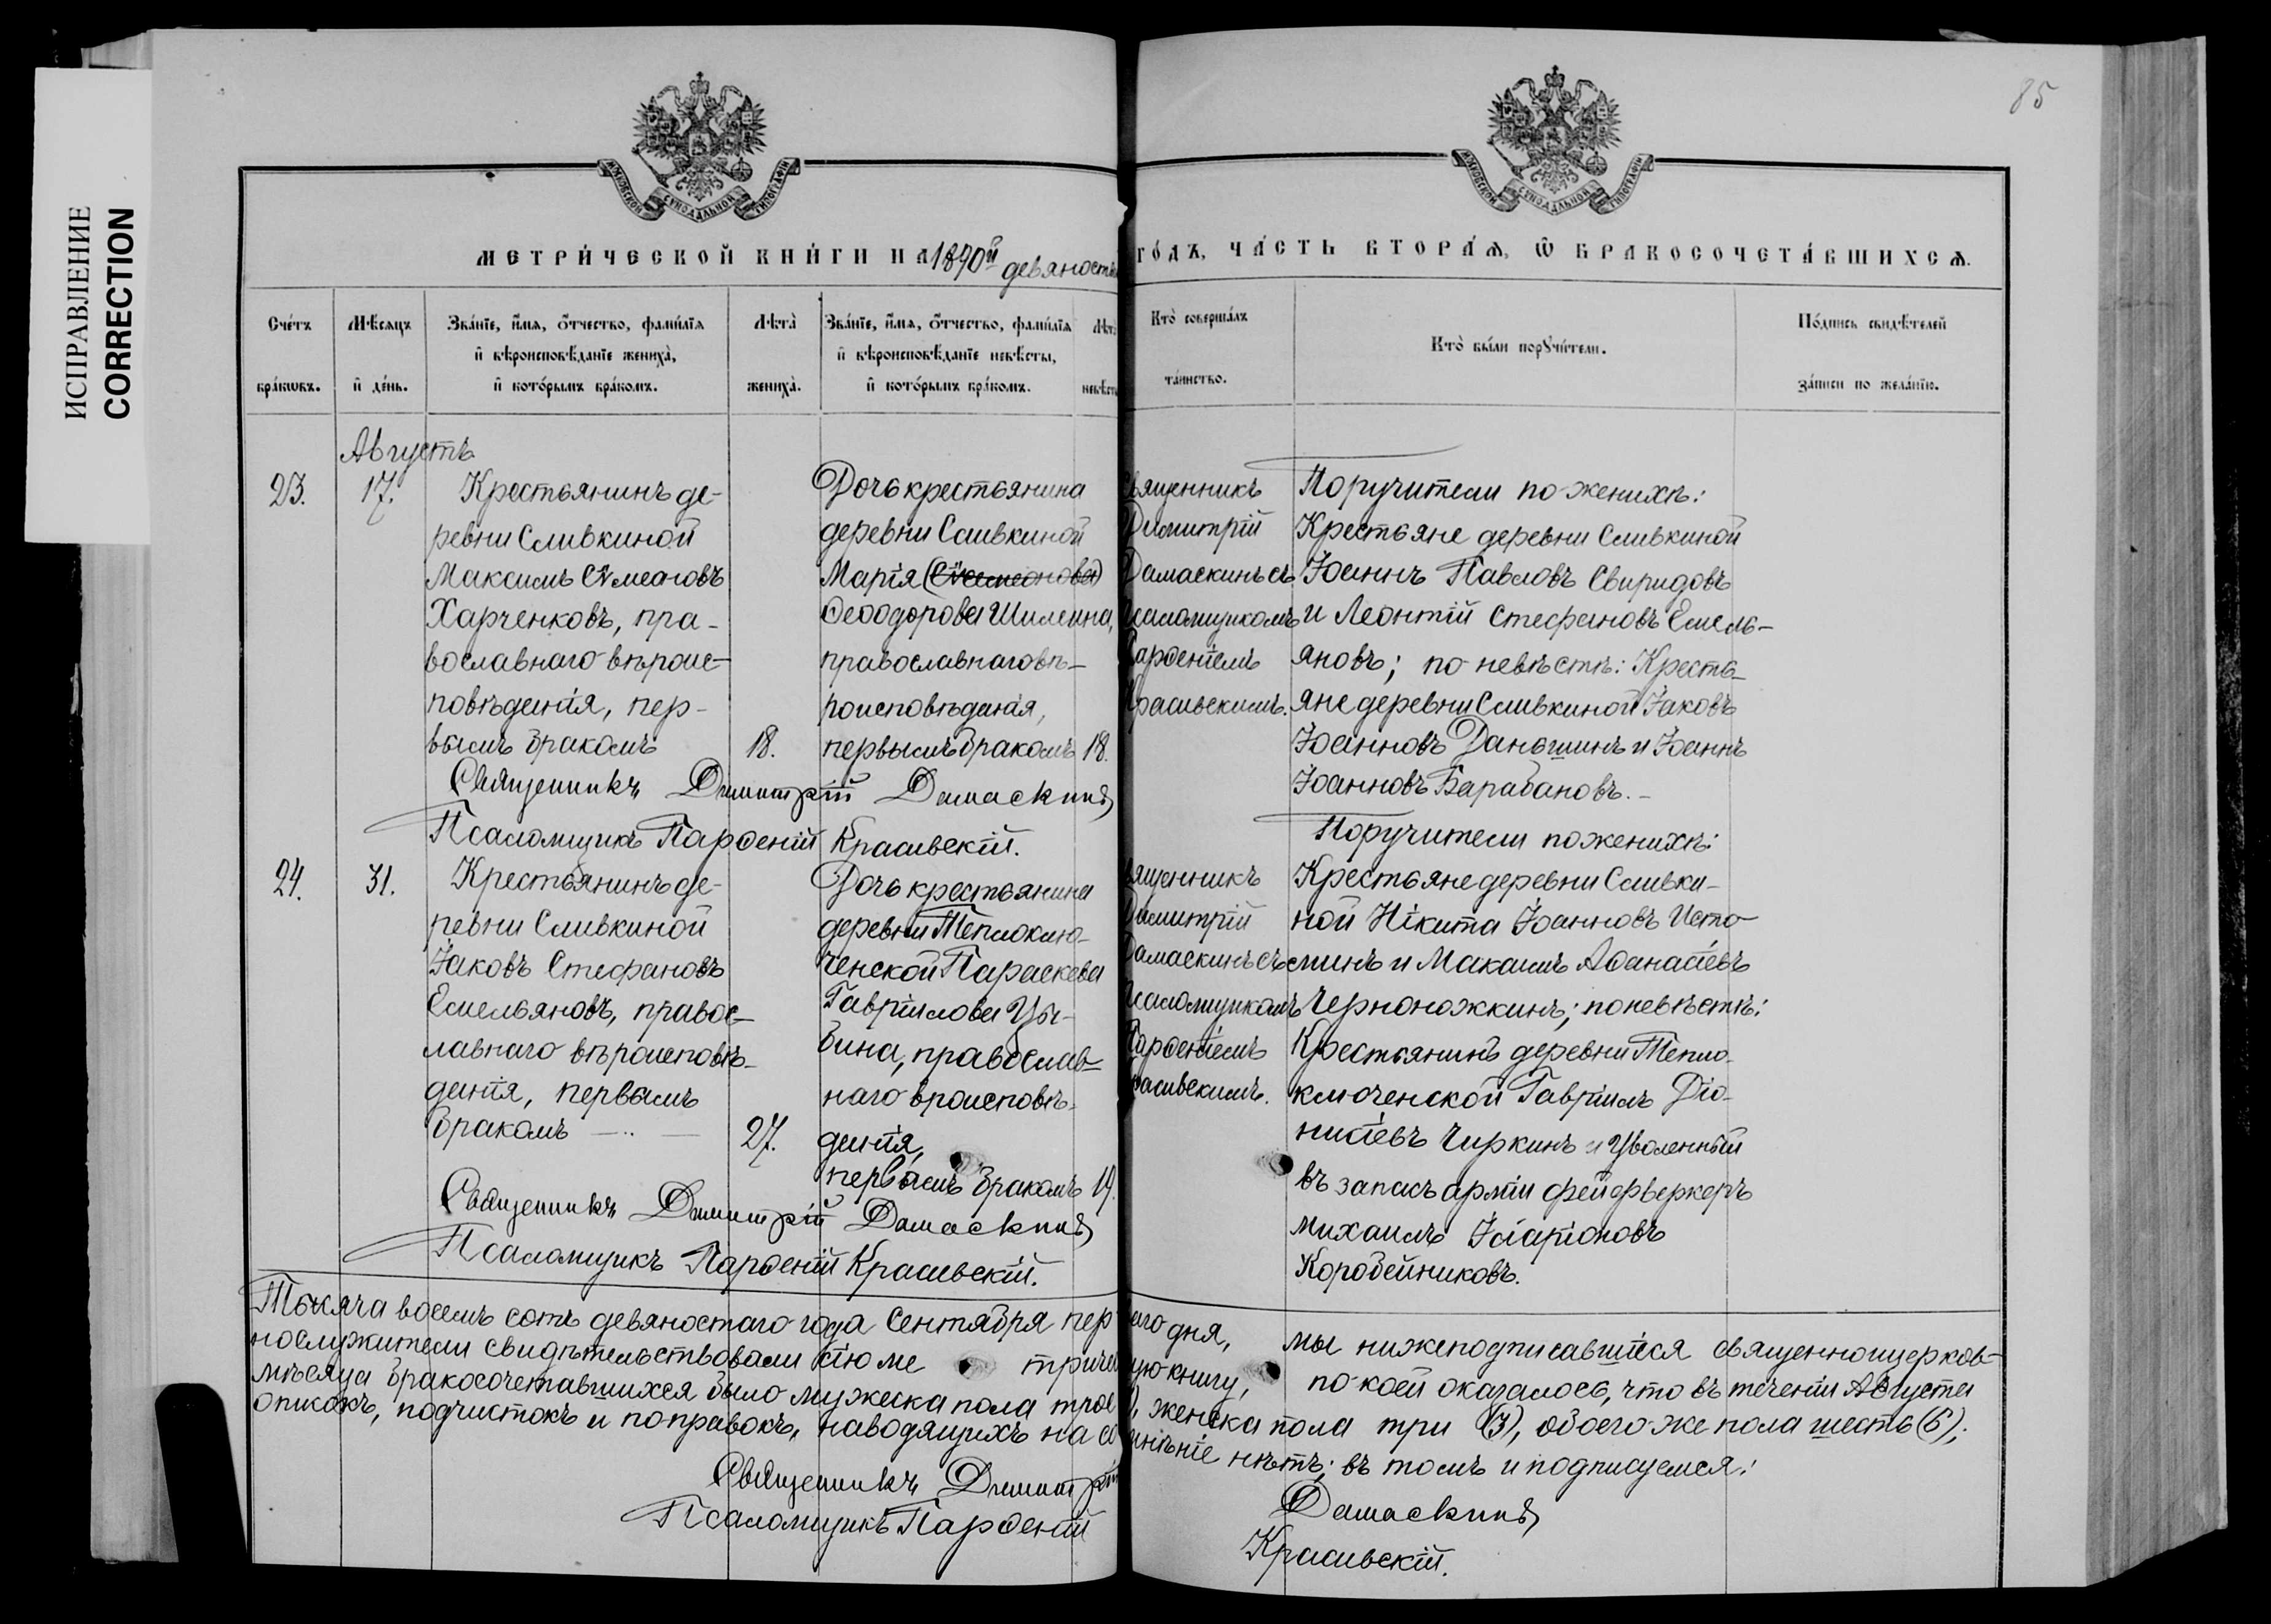 ИСПРАВЛЕНИЕ
CORRECTION
85
МОСКОВСКОЙ СѴНОДАЛЬНОЙ ТИПОГРАФІИ
МОСКОВСКОЙ СѴНОДАЛЬНОЙ ТИПОГРАФІИ
МЕТРИ́ЧЕСКОЙ КНИ́ГИ НА 1890й девяносты
ГО́ДЪ, ЧА́СТЬ ВТОРА́Ѧ, Ѽ БРАКОСОЧЕТА́ВШИХСѦ.
Сче́тъ
бра́кѡвъ.
Мѣсѧцъ
и҆ де́нь.
Зва́нїе, и҆́мѧ, ѻ҆́тчество, фами́лїѧ
и҆ вѣроисповѣ́данїе жениха̀,
и҆ кото́рымъ бра́комъ.
Лѣта̀
жениха̀.
Зва́нїе, и҆́мѧ, ѻ҆́тчество, фами́лїѧ
и҆ вѣроисповѣ́данїе невѣ́сты,
и҆ кото́рымъ бра́комъ.
Лѣта
невѣсты
Кто̀ соверша́лъ
та́инство.
Кто̀ бы́ли порꙋчи́тели.
По́дпись свидѣ́телей
за́писи по жела́нїю.
Августъ
23.
17.
Крестьянинъ де-
ревни Сливкиной
Максимъ Сѵмеоновъ
Харченковъ, пра-
вославнаго вѣроис-
повѣданія, пер-
вымъ бракомъ
18.
Дочь крестьянина
деревни Сливкиной
Марія (Сѵмеонова)
Ѳеодорова Шилина,
православнаго вѣ-
роисповѣданія,
первымъ бракомъ
18.
вященникъ
Димитрій
Дамаскинъ съ
псаломщикомъ
Парѳеніемъ
Красивскимъ.
Поручители по женихѣ:
Крестьяне деревни Сливкиной
Іоаннъ Павловъ Свиридовъ
и Леонтій Стефановъ Емель-
яновъ; по невѣстѣ: Кресть-
яне деревни Сливкиной Іаковъ
Іоанновъ Даньшинъ и Іоаннъ
Іоанновъ Барабановъ.-
Священникъ Димитрій Дамаскинъ
Псаломщикъ Парѳеній Красивскій.
24.
31.
Крестьянинъ де-
ревни Сливкиной
Іаковъ Стефановъ
Емельяновъ, правос-
лавнаго вѣроисповѣ-
данія, первымъ
бракомъ
27.
Дочь крестьянина
деревни Теплоклю-
ченской Параскева
Гавріилова Цы-
бина, православ-
наго вроисповѣ-
данія,
первымъ бракомъ
19.
вященникъ
Димитрій
Дамаскинъ съ
псаломщикомъ
Парѳеніемъ
расивскимъ.
Поручители по женихѣ:
Крестьяне деревни Сливки-
ной Нікита Іоанновъ Исто-
минъ и Максимъ Аѳанасіевъ
Черноножкинъ; по невѣстѣ:
Крестьянинъ деревни Тепло-
ключенской Гавріилъ Діо-
нисіевъ Чиркинъ и Уволенный
въ запасъ арміи фейерверкеръ
Михаилъ Іларіоновъ
Коробейниковъ.
Священникъ Димитрій Дамаскинъ
Псаломщикъ Парѳеній Красивскій.
Тысяча восемь сотъ девяностаго года Сентября пер ваго дня, мы нижеподписавшіеся священноцерков-
нослужители свидѣтельствовали сію ме тричес ую книгу, по коей оказалось, что въ теченіи Августа
мѣсяца бракосочетавшихся было мужеска пола трое ), женска пола три (3), обоего же пола шесть (6);
описокъ, подчистокъ и поправокъ, наводящихъ на со мнѣніе нѣтъ; въ томъ и подписуемся:
Священникъ Димитрій Дамаскинъ
Псаломщикъ Парѳеній Красивскій.